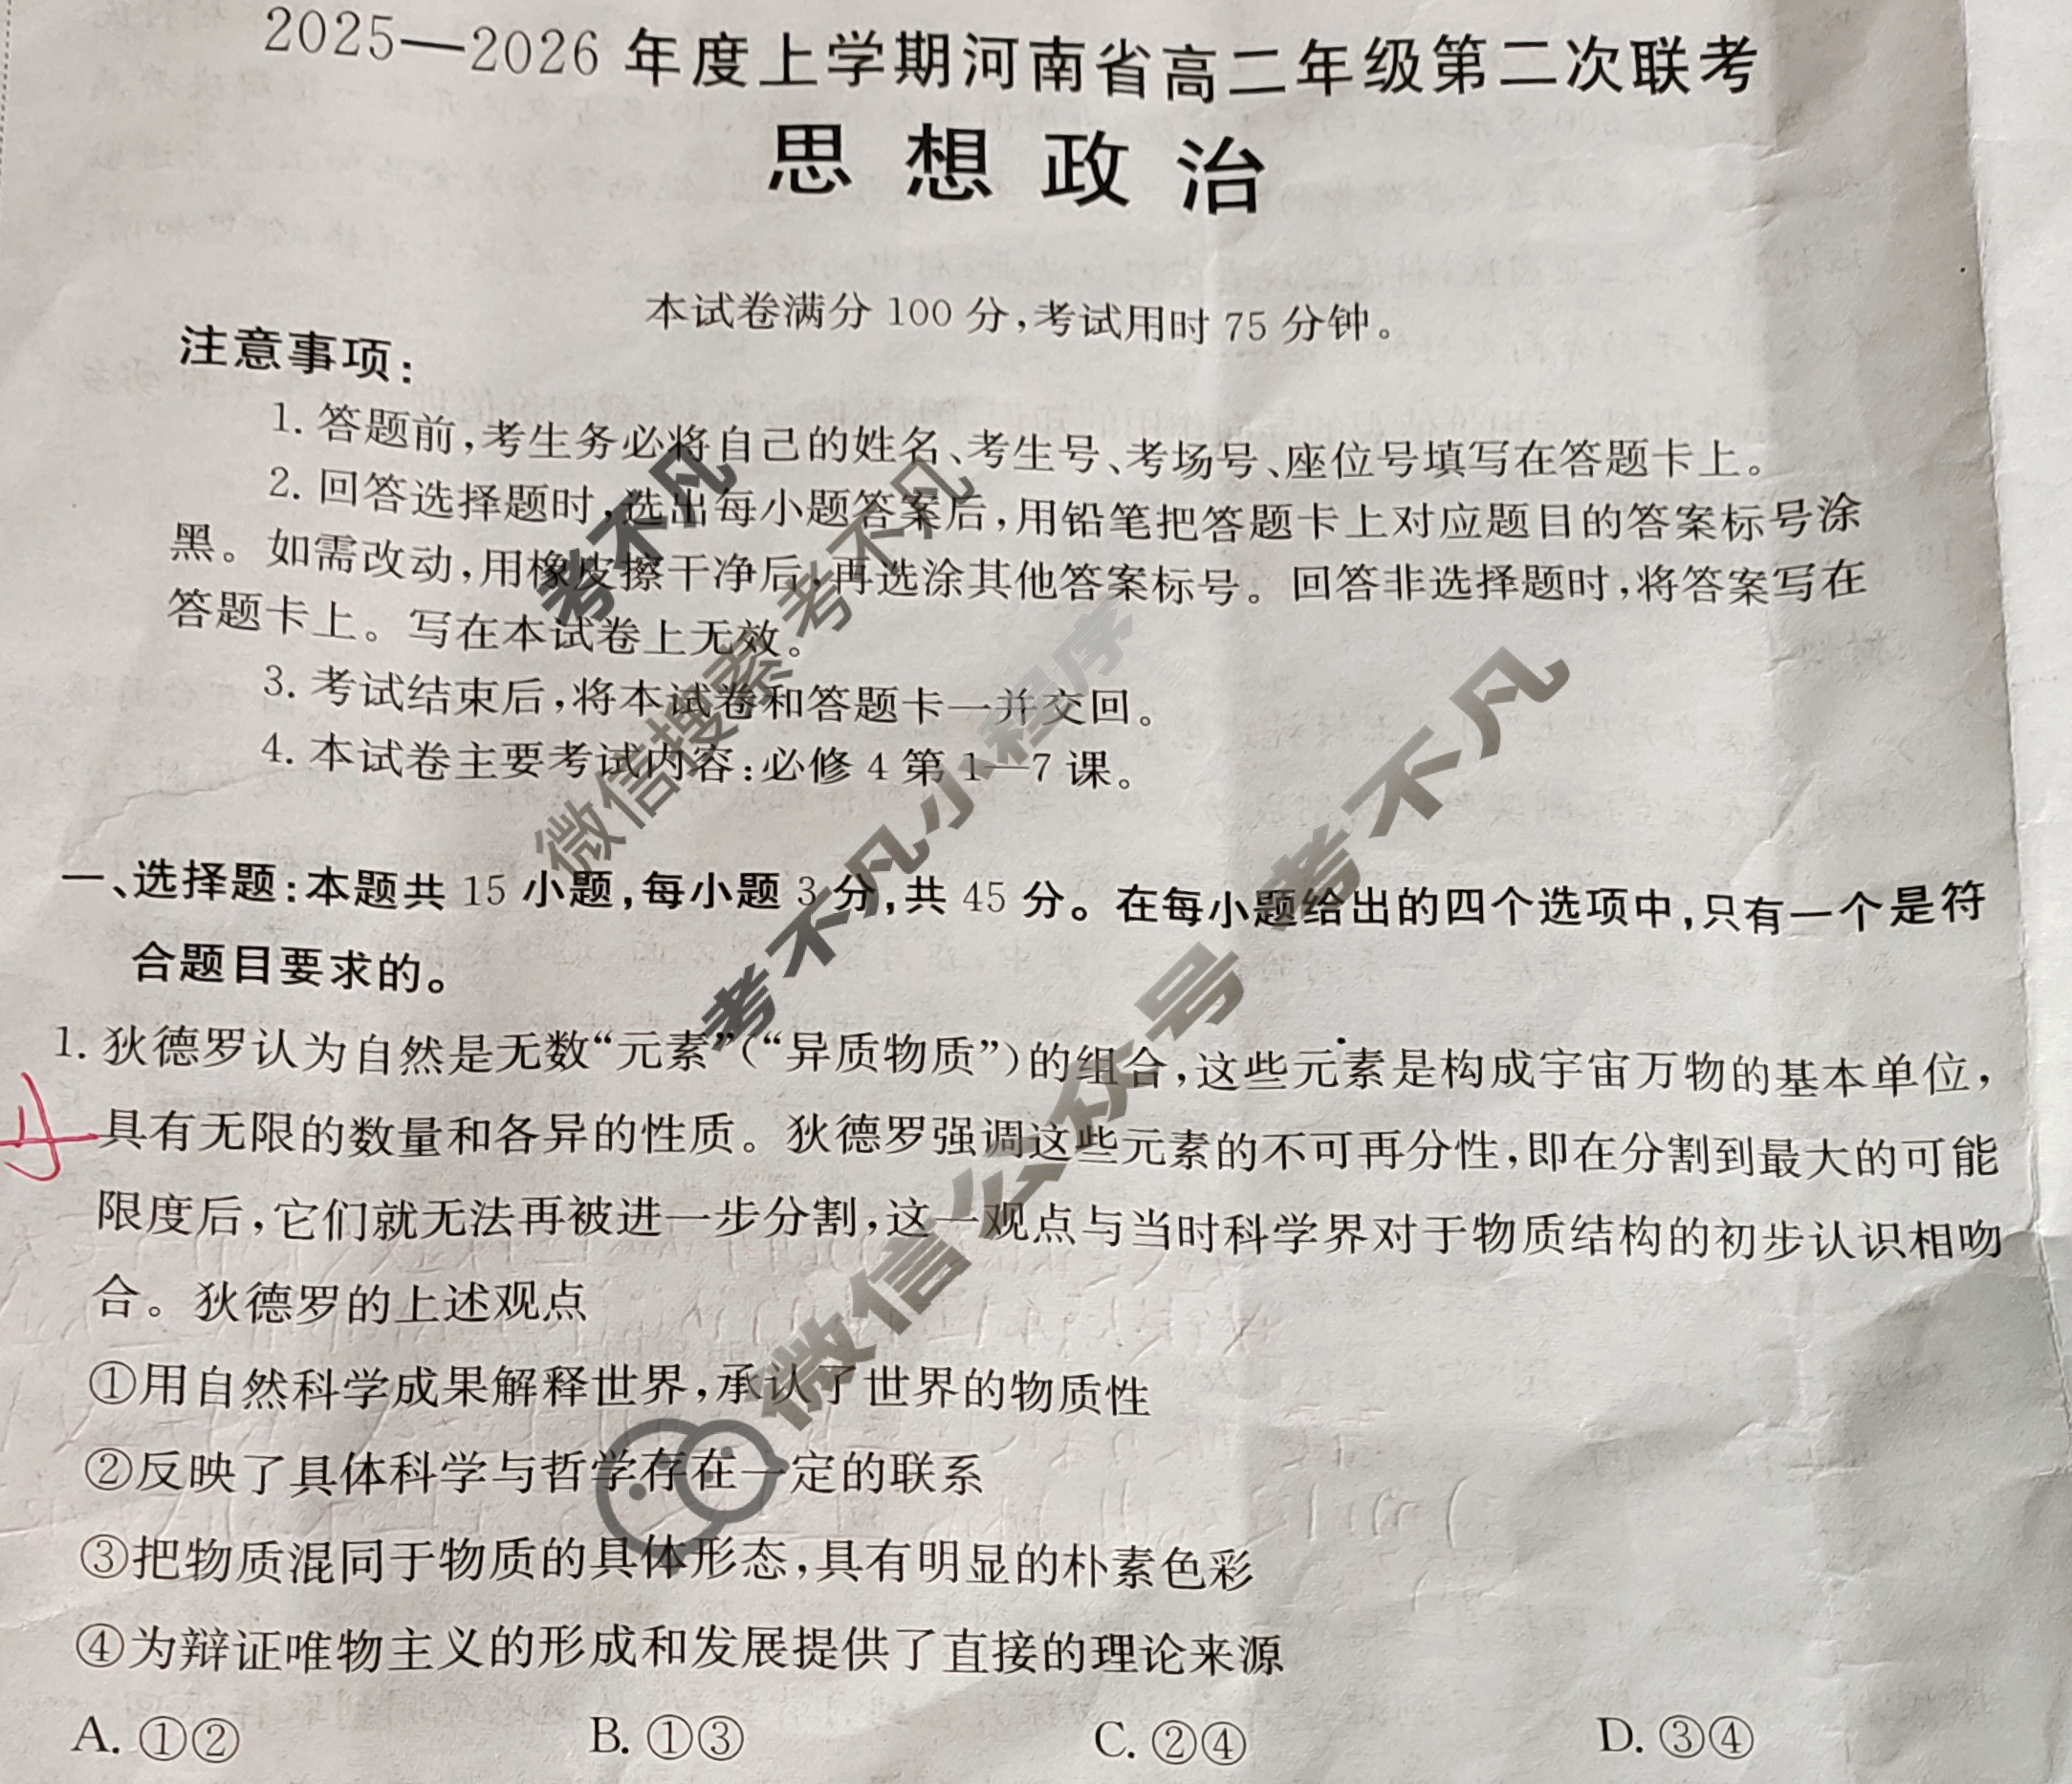 2025—2026年度上学期河南省高二年级第二次联考
思想政治
本试卷满分100分,考试用时75分钟。
注意事项:
1.答题前,考生务必将自己的姓名、考生号、考场号、座位号填写在答题卡上。
2.回答选择题时,选出每小题答案后,用铅笔把答题卡上对应题目的答案标号涂
黑。如需改动,用橡皮擦干净后,再选涂其他答案标号。回答非选择题时,将答案写在
答题卡上。写在本试卷上无效。
3.考试结束后,将本试卷和答题卡一并交回。
4.本试卷主要考试内容:必修4第1—7课。
一、选择题:本题共15小题,每小题3分,共45分。在每小题给出的四个选项中,只有一个是符
合题目要求的。
1.狄德罗认为自然是无数“元素”(“异质物质”)的组合,这些元素是构成宇宙万物的基本单位,
具有无限的数量和各异的性质。狄德罗强调这些元素的不可再分性,即在分割到最大的可能
限度后,它们就无法再被进一步分割,这一观点与当时科学界对于物质结构的初步认识相吻
合。狄德罗的上述观点
①用自然科学成果解释世界,承认了世界的物质性
②反映了具体科学与哲学存在一定的联系
③把物质混同于物质的具体形态,具有明显的朴素色彩
④为辩证唯物主义的形成和发展提供了直接的理论来源
A.①② B.①③ C.②④ D.③④
考不凡
微信搜索 考不凡
考不凡小程序
微信公众号 考不凡